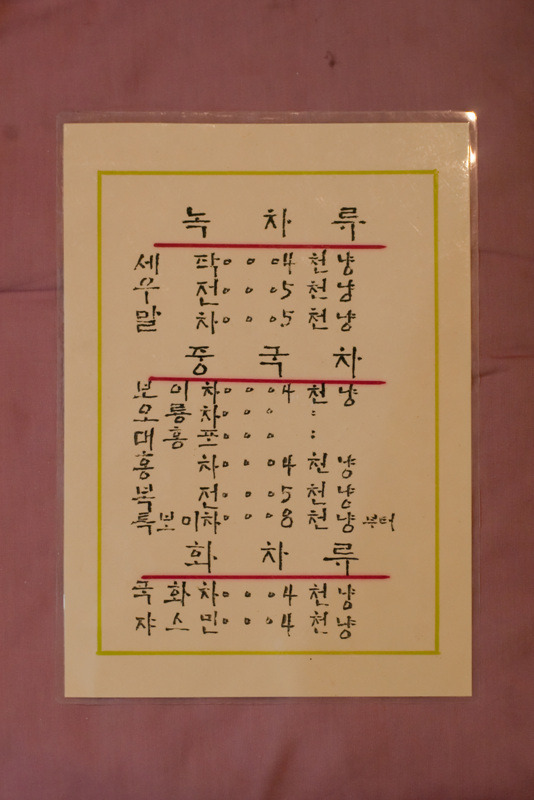 녹 차 류
세 작 ∘ ∘ ∘ 4 천 냥
우 전 ∘ ∘ ∘ 5 천 냥
말 차 ∘ ∘ ∘ 5 천 냥
중 국 차
보 이 차 ∘ ∘ ∘ 4 천 냥
오 룡 차 ∘ ∘ ∘ :
대 홍 포 ∘ ∘ ∘ :
홍 차 ∘ ∘ ∘ 4 천 냥
복 전 ∘ ∘ ∘ 5 천 냥
특보이차 ∘ ∘ ∘ 8 천 냥 부터
화 차 류
국 화 차 ∘ ∘ ∘ 4 천 냥
쟈 스 민 ∘ ∘ ∘ 4 천 냥